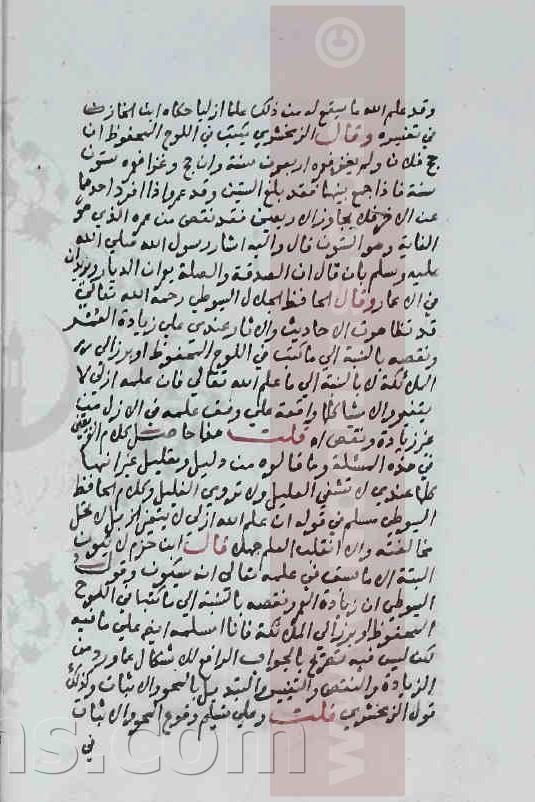 وقد علم الله ما سيقع له من ذلك علما ازليا حكاه ابن الخازن
في تفسيره وقال الزمخشري يكتب في اللوح المحفوظ ان
حج فلان ولم يغز فعمره اربعون سنة وان حج وغزا فعمره ستون
سنة فاذا جمع بينهما فقد بلغ الستين وقد عمر واذا افرد احدهما
عن الاخر فلا يجاوز الاربعين فقد نقص من عمره الذي هو
الغاية وهو الستون قال واليه اشار رسول الله صلي الله
عليه وسلم بان قال ان الصدقة والصلة يعمران الديار ويزيدان
في الاعمار وقال الحافظ الجلال السيوطي رحمه الله تعالي
قد تظاهرت الاحاديث والاثار عندي علي زيادة العمر
ونقصه بالنسبة الي ما كتب في اللوح المحفوظ او برز الي
الملائكة لا بالنسبة الي ما علم الله تعالي فان علمه ازلي لا
يتغير والاشيا كلها واقعة علي وفق علمه في الازل من
غير زيادة ونقص اه قلت هذا حاصل كلام
في هذه المسئلة وما قالوه من دليل وتعليل غير انها
كلها عندي لا تشفي العليل ولا تروي الغليل وكلام الحافظ
السيوطي مسلم في قوله ان علم الله ازلي لا يتغير
مخالفته والا انقلب العلم جهلا قال ابن حزم لا يكون
البتة الا ما سبق في علمه تعالي انه سيكون وقول
السيوطي ان زيادة العمر ونقصه بالنسبة الي ما كتب في اللوح
المحفوظ او برز الي الملائكة فانا اسلمه ايضا علي ما فيه
لكن ليس فيه تصريح بالجواب الرافع للاشكال عما ورد من
الزيادة والنقص والتغيير والتبديل بالمحو والاثبات وكذلك
قول الزمخشري قلت وعلي تسليم وقوع المحو والاثبات
في